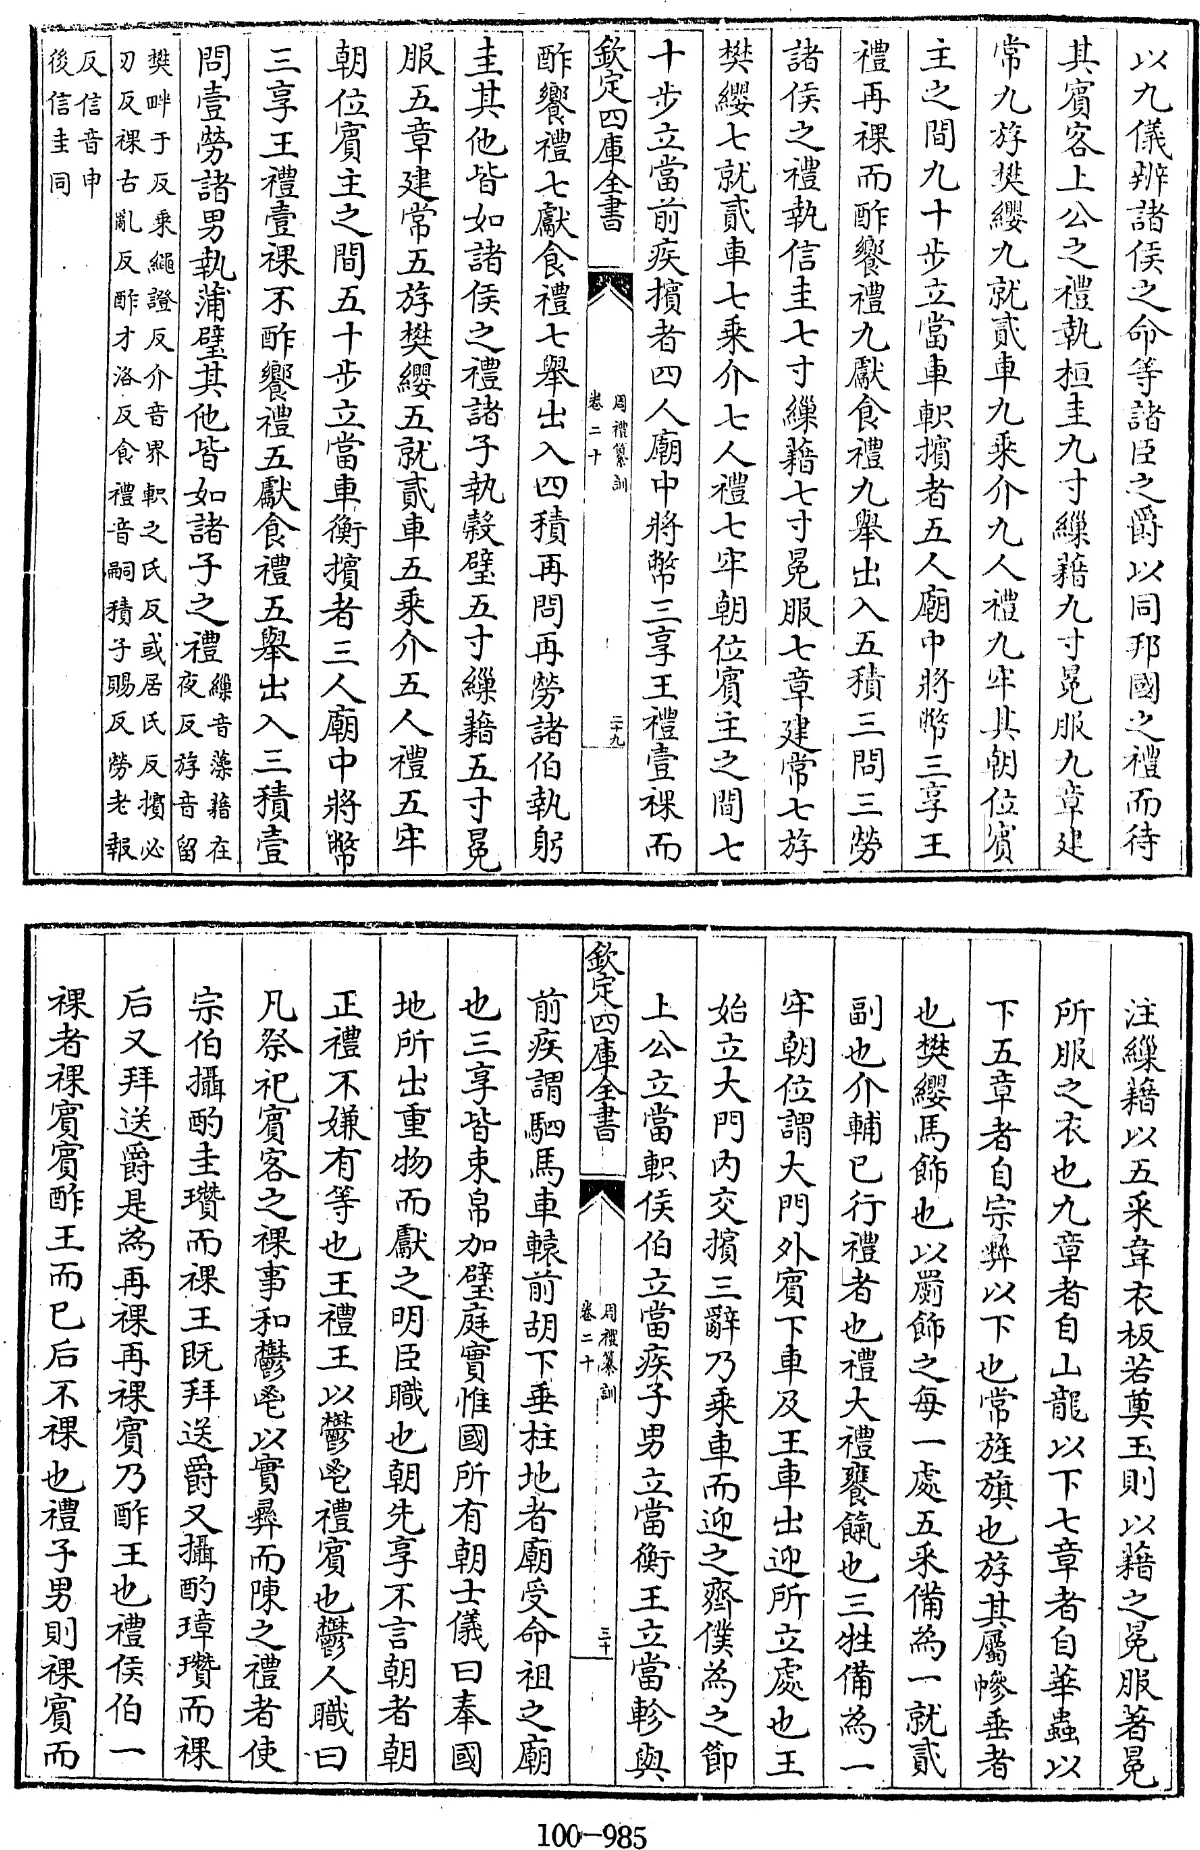 以九儀辨諸侯之命等諸臣之爵以同邦國之禮而待
其賓客上公之禮執桓圭九寸繅藉九寸冕服九章建
常九斿樊纓九就貳車九乘介九人禮九牢其朝位賓
主之間九十步立當車軹擯者五人廟中將幣三享王
禮再祼而酢饗禮九獻食禮九舉出入五積三問三勞
諸侯之禮執信圭七寸繅藉七寸冕服七章建常七斿
樊纓七就貳車七乘介七人禮七牢朝位賓主之間七
十步立當前疾擯者四人廟中將幣三享王禮壹祼而
欽定四庫全書
周禮纂訓
卷二十
二十九
酢饗禮七獻食禮七舉出入四積再問再勞諸伯執躬
圭其他皆如諸侯之禮諸子執穀璧五寸繅藉五寸冕
服五章建常五斿樊纓五就貳車五乘介五人禮五牢
朝位賓主之間五十步立當車衡擯者三人廟中將幣
三享王禮壹祼不酢饗禮五獻食禮五舉出入三積壹
問壹勞諸男執蒲璧其他皆如諸子之禮
繅音藻藉在
夜反斿音留
樊畔于反乘繩證反介音界軹之氏反或居氏反擯必
刃反祼古亂反酢才洛反食禮音嗣積子賜反勞老報
反信音申
後信圭同
注繅藉以五采韋衣板若奠玉則以藉之冕服著冕
所服之衣也九章者自山龍以下七章者自華蟲以
下五章者自宗彝以下也常旌旗也斿其屬幓垂者
也樊纓馬飾也以罽飾之每一處五采備為一就貳
副也介輔已行禮者也禮大禮饔餼也三牲備為一
牢朝位謂大門外賓下車及王車出迎所立處也王
始立大門內交擯三辭乃乘車而迎之齊僕為之節
上公立當軹侯伯立當疾子男立當衡王立當軫與
欽定四庫全書
周禮纂訓
卷二十
三十
前疾謂駟馬車轅前胡下垂柱地者廟受命祖之廟
也三享皆束帛加璧庭實惟國所有朝士儀曰奉國
地所出重物而獻之明臣職也朝先享不言朝者朝
正禮不嫌有等也王禮王以鬱鬯禮賓也鬱人職曰
凡祭祀賓客之祼事和鬱鬯以實彝而陳之禮者使
宗伯攝酌圭瓚而祼王既拜送爵又攝酌璋瓚而祼
后又拜送爵是為再祼再祼賓乃酢王也禮侯伯一
祼者祼賓賓酢王而已后不祼也禮子男則祼賓而
100-985